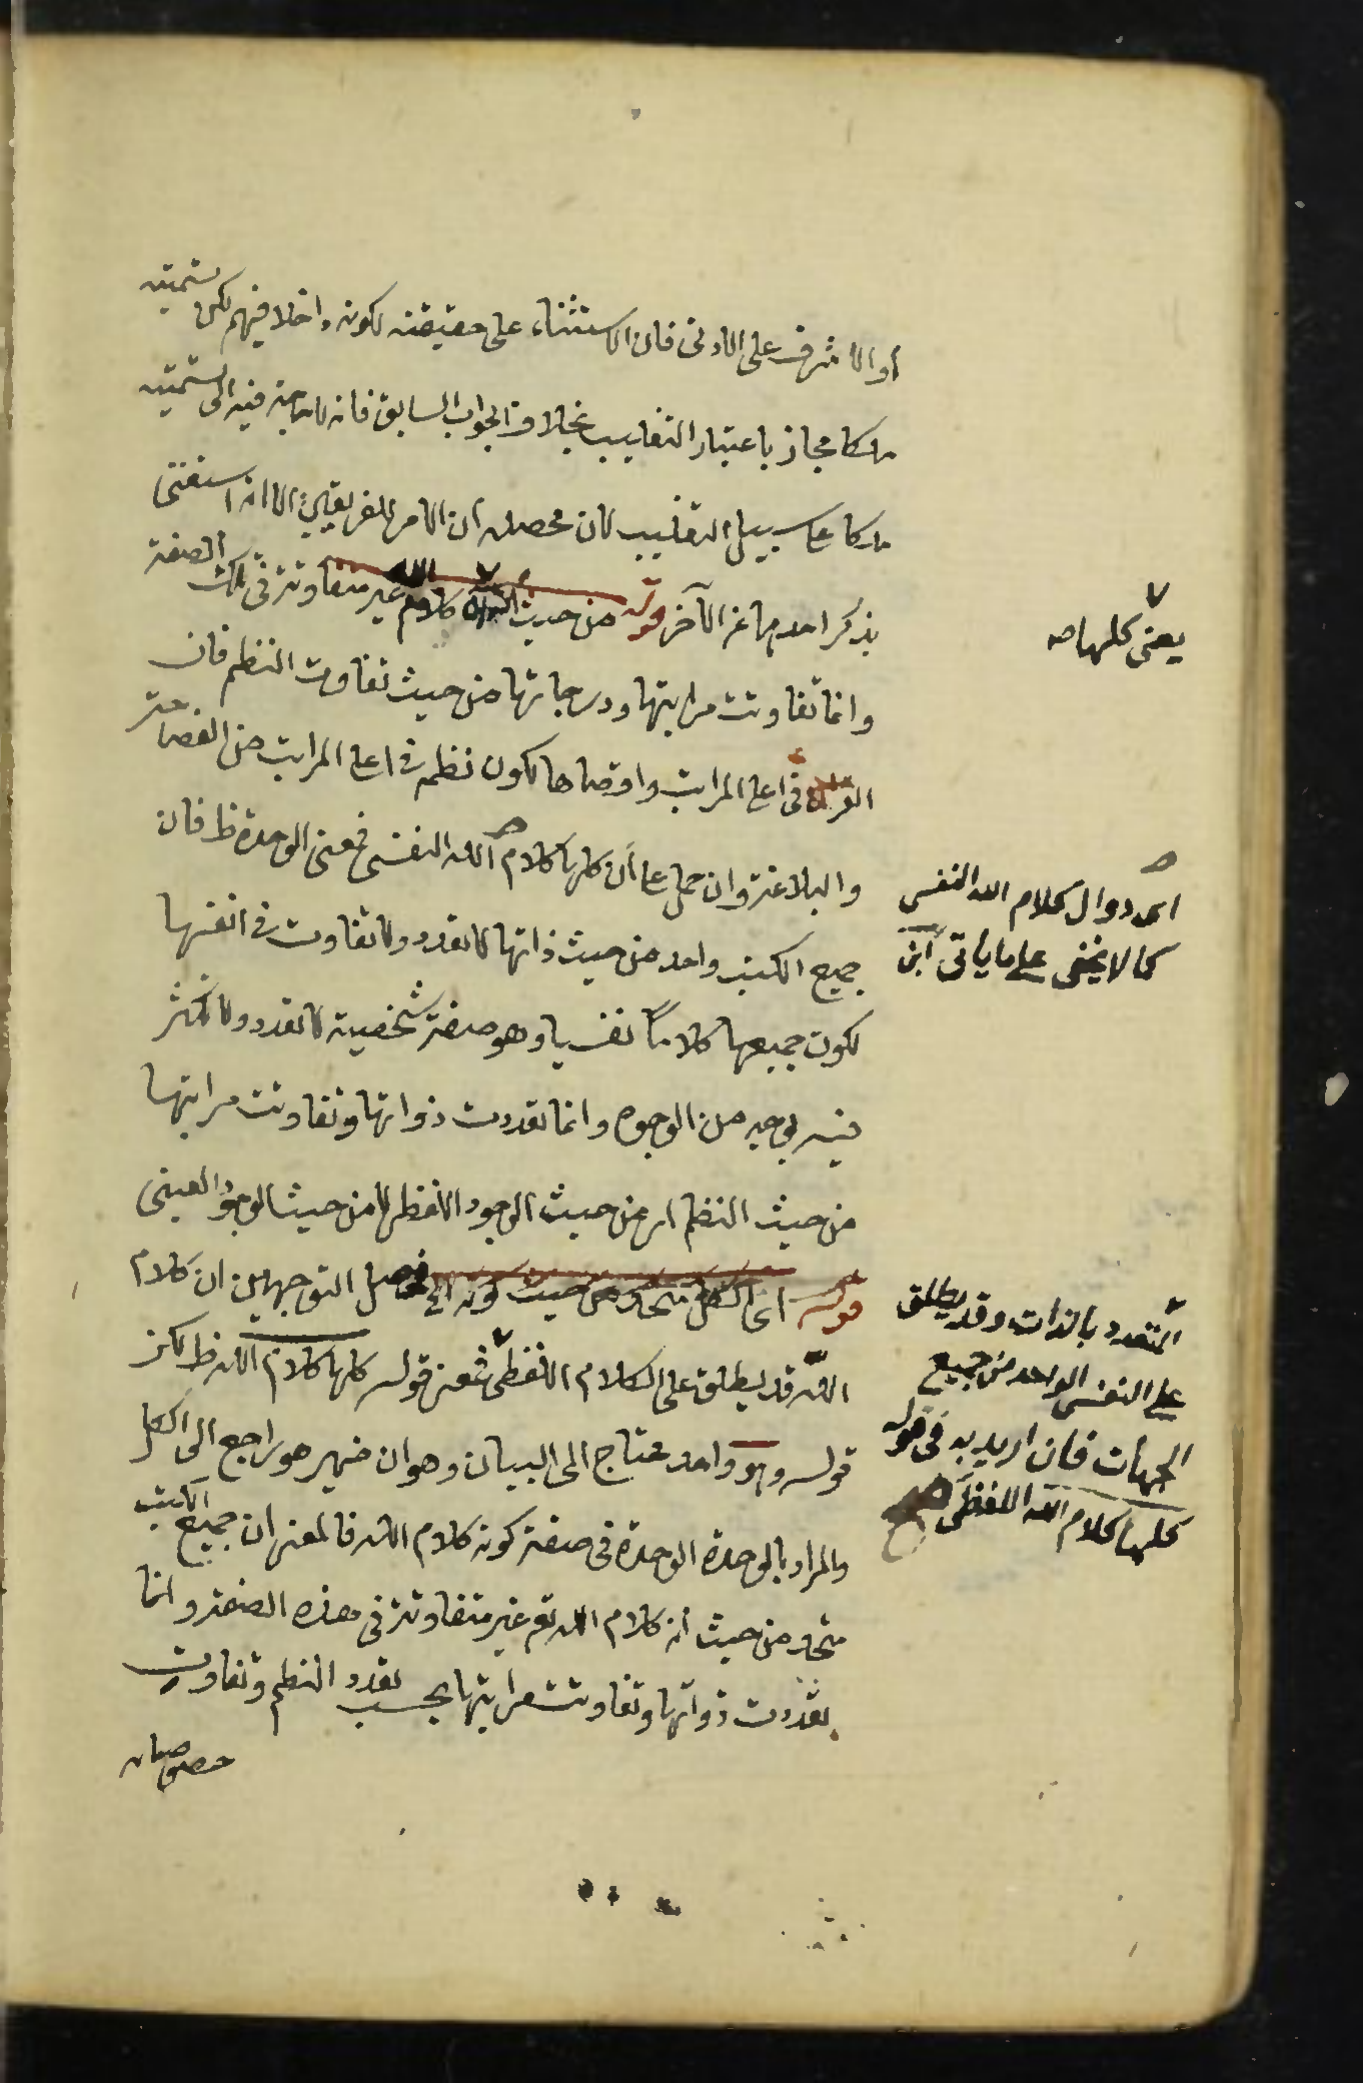 أو الاشرف على الادنى فان الاستثناء على حقيقته لكونه داخلا فيهم لكن تسميته
ملكا مجاز باعتبار التغليب بخلاف الجواب السابق فانه لا حاجة فيه الى تسميته
ملكا على سبيل التغليب لان محصله ان الامر للفريقين الا انه استغنى
بذكر احدهما عن الآخر قوله من حيث انه كلام الله غير متفاوتة في تلك الصفة
وانما تفاوتت مراتبها ودرجاتها من حيث تفاوت النظم فان
القرآن في اعلى المراتب واقصاها لكون نظمه في اعلى المراتب من الفصاحة
والبلاغة وان حمل على أن كلها كلام الله النفسي فمعنى الوحدة ظ فان
جميع الكتب واحد من حيث ذاتها لا تعدد ولا تفاوت في انفسها
لكون جميعها كلاماً نفسيا وهو صفة شخصية لا تعدد ولا تكثر
فيه بوجه من الوجوه وانما تعددت ذواتها وتفاوتت مراتبها
من حيث النظم اي من حيث الوجود اللفظي لا من حيث الوجود العيني
قوله اى الكل متحد من حيث كونه الخ محصل التوجيهين ان كلام
الله قد يطلق على الكلام اللفظي فمعنى قوله كلها كلام الله ظ لكن
قوله وهو واحد محتاج الى البيان وهو ان ضمير هو راجع الى الكل
والمراد بالوحدة الوحدة في صفة كونه كلام الله فالمعنى ان جميع الكتب
متحد من حيث أنه كلام الله تع غير متفاوتة في هذه الصفة وانما
تعددت ذواتها وتفاوتت مراتبها بحسب تعدد النظم وتفاوت
خصوصياته
يعنى كلها صه
اى دوال كلام الله النفسي
كما لا يخفى على ما يأتي
المتعدد بالذات وقد يطلق
على النفسي الواحد من جميع
الجهات فان اريد به في قوله
كلها كلام الله اللفظى صح